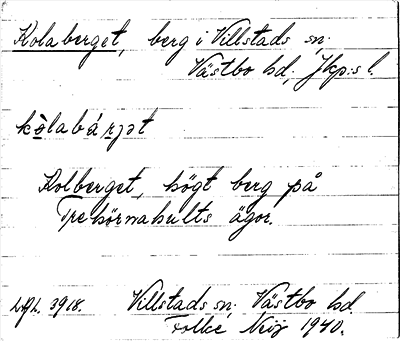 Kolaberget, berg i Villstads sn;
Västbo hd; Jkp:s l.
kòlabárjət
Kolberget, högt berg på
Trehörnahults ägor.
3918. Villstads sn; Västbo hd.
Folke 1940.